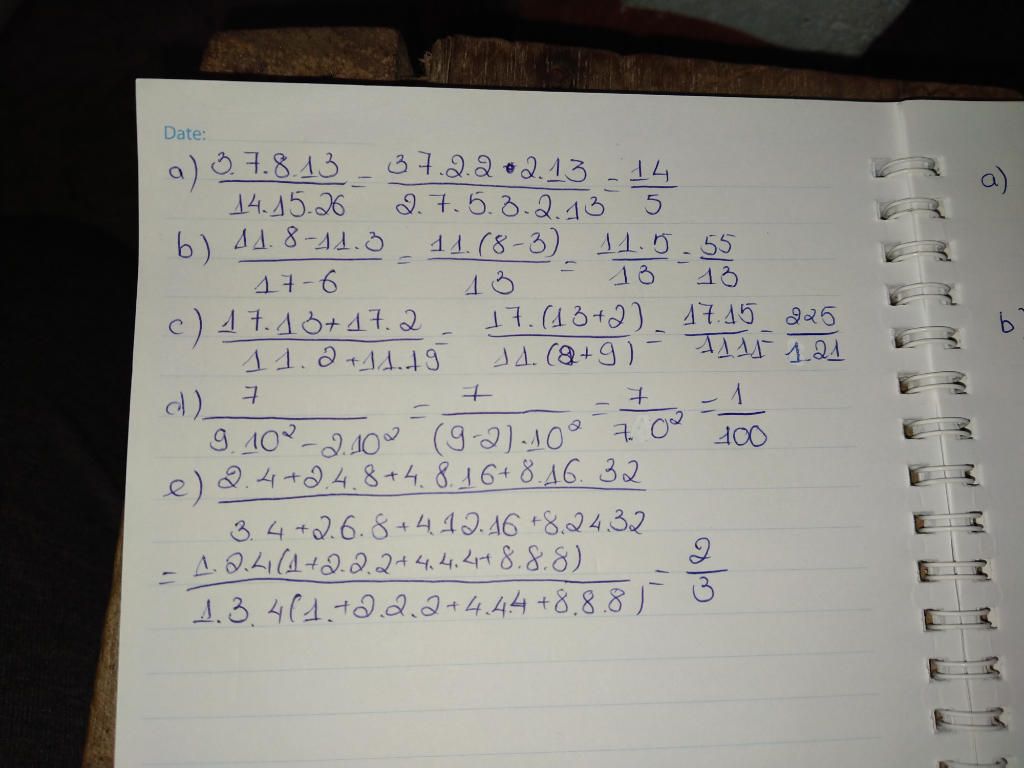 Date:
a) 3.7.8.13/14.15.26 = 37.2.2.2.13/2.7.5.3.2.13 = 14/5
a)
b) 11.8-11.3/17-6 = 11.(8-3)/13 = 11.5/13 = 55/13
c) 17.13+17.2/11.2+11.19 = 17.(13+2)/11.(2+9) = 17.15/1111 = 225/1.21
b)
d) 7/9.10²-2.10² = 7/(9-2).10² = 7/7.0² = 1/100
e) 2.4+2.4.8+4.8.16+8.16.32/3.4+2.6.8+4.12.16+8.24.32
= 1.2.4(1+2.2.2+4.4.4+8.8.8)/1.3.4(1.+2.2.2+4.44+8.8.8) = 2/3